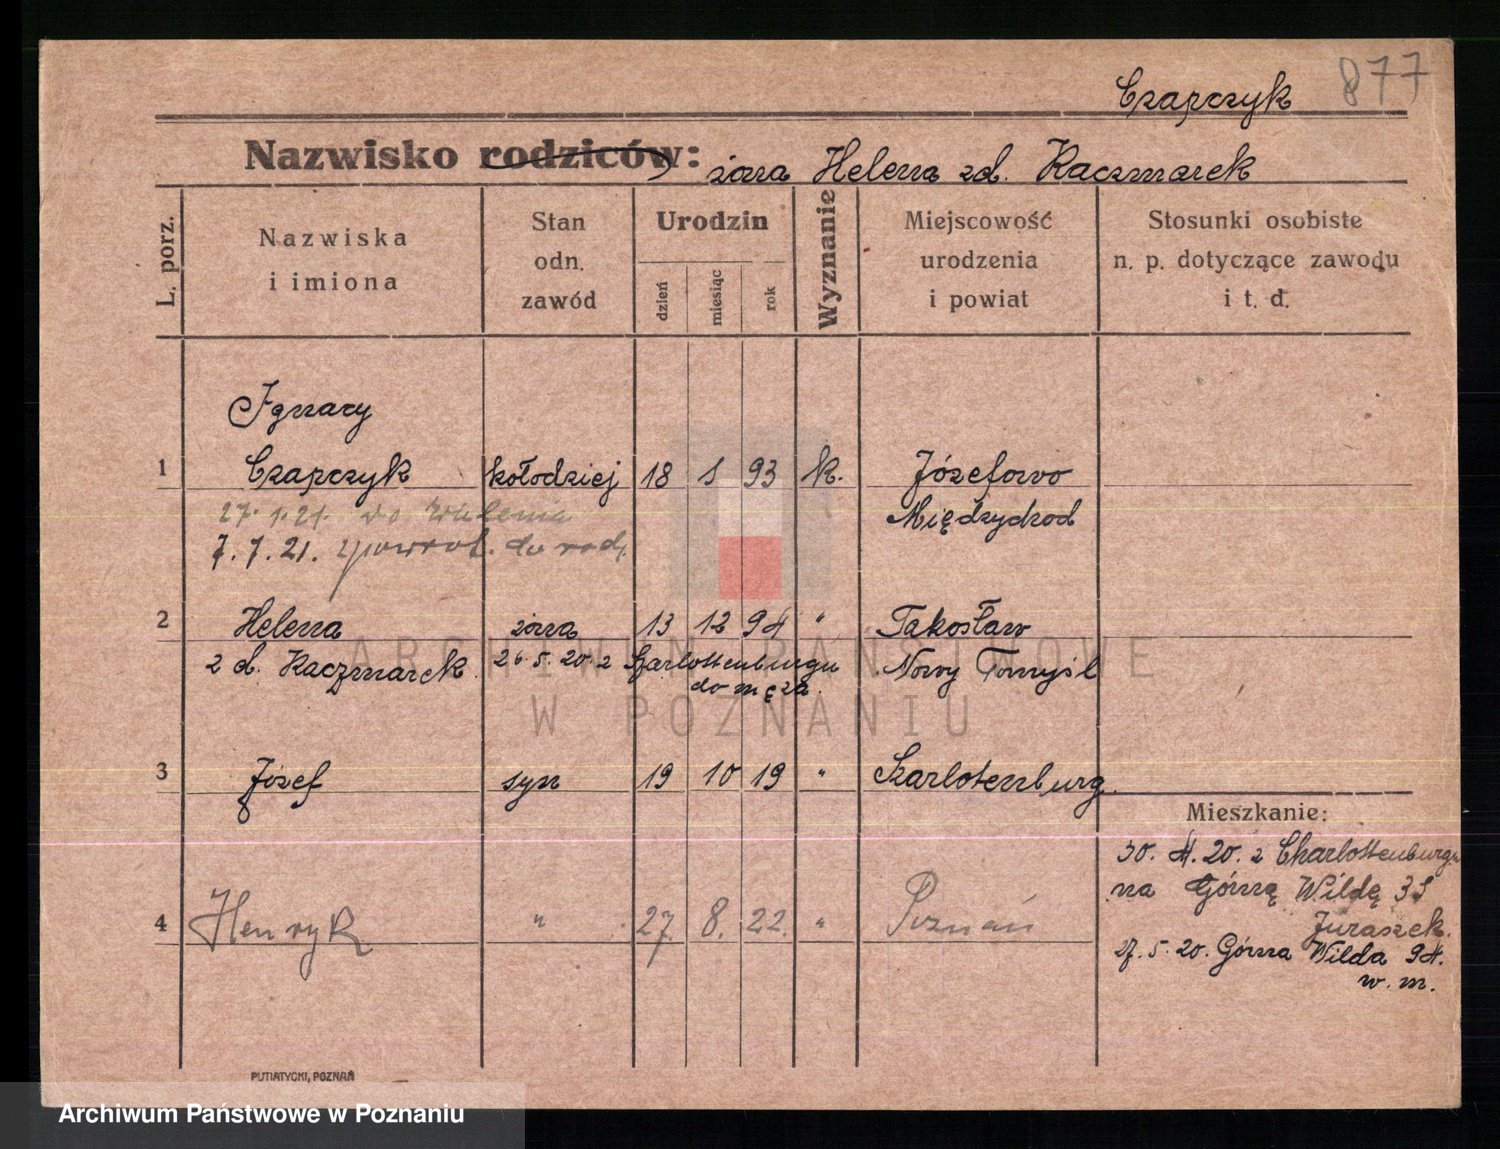 877
Czapczyk
Nazwisko rodziców: żona Helena zd. Kaczmarek
L. porz.
Nazwiska i imiona
Stan odn. zawód
Urodzin
dzień miesiąc rok
Wyznanie
Miejscowość urodzenia i powiat
Stosunki osobiste n. p. dotyczące zawodu i t. d.
Ignacy
1 Czapczyk kołodziej 18 1 93 k. Józefowo
27.1.21. do Międzychod
7.7.21. do
2 Helena żona 13 12 94 " Jakosław
z d. Kaczmarek 26.5.20. z Szarlottenburgu Nowy Tomyśl
do męża.
3 Józef syn 19 10 19 " Szarlotenburg
Mieszkanie:
30.4.20. z Charlottenburgu
na Górną Wildę
4 Henryk " 27. 8. 22. " Poznań
Juraszek.
27.5.20. Górna Wilda 94.
w. m.
PUTIATYCKI, POZNAŃ
ARCHIWUM PAŃSTWOWE
W POZNANIU
Archiwum Państwowe w Poznaniu